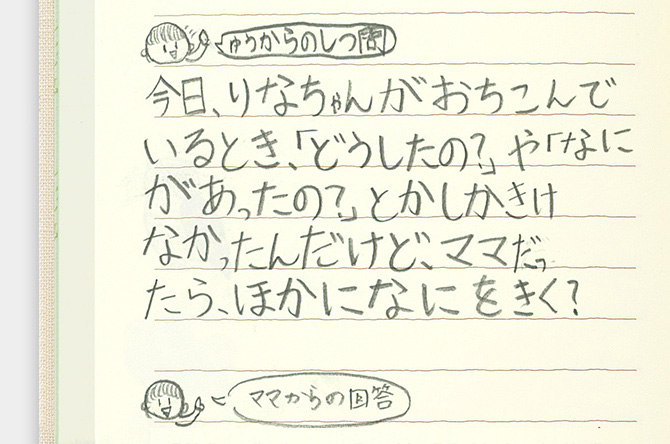 ゆうからのしつ問
今日、りなちゃんがおちこんで
いるとき、「どうしたの?」や「なに
があったの?」とかしかきけ
なかったんだけど、ママだっ
たら、ほかになにをきく?
ママからの回答